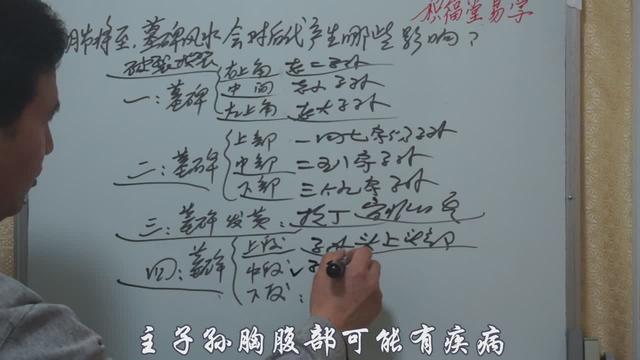 积福堂易学
明节将至，墓碑风水，会对后代产生哪些影响？
破裂 裂
一：墓碑
右上角 在二子孙
中间 在小子孙
左上角 在大子孙
二：墓碑
上部 一四七房的子孙
中部 二五八房子孙
下部 三六九房子孙
三：墓碑发黄：损丁
四：墓碑
上段 子孙 头上 头部
中段
下段：
主子孙胸腹部可能有疾病